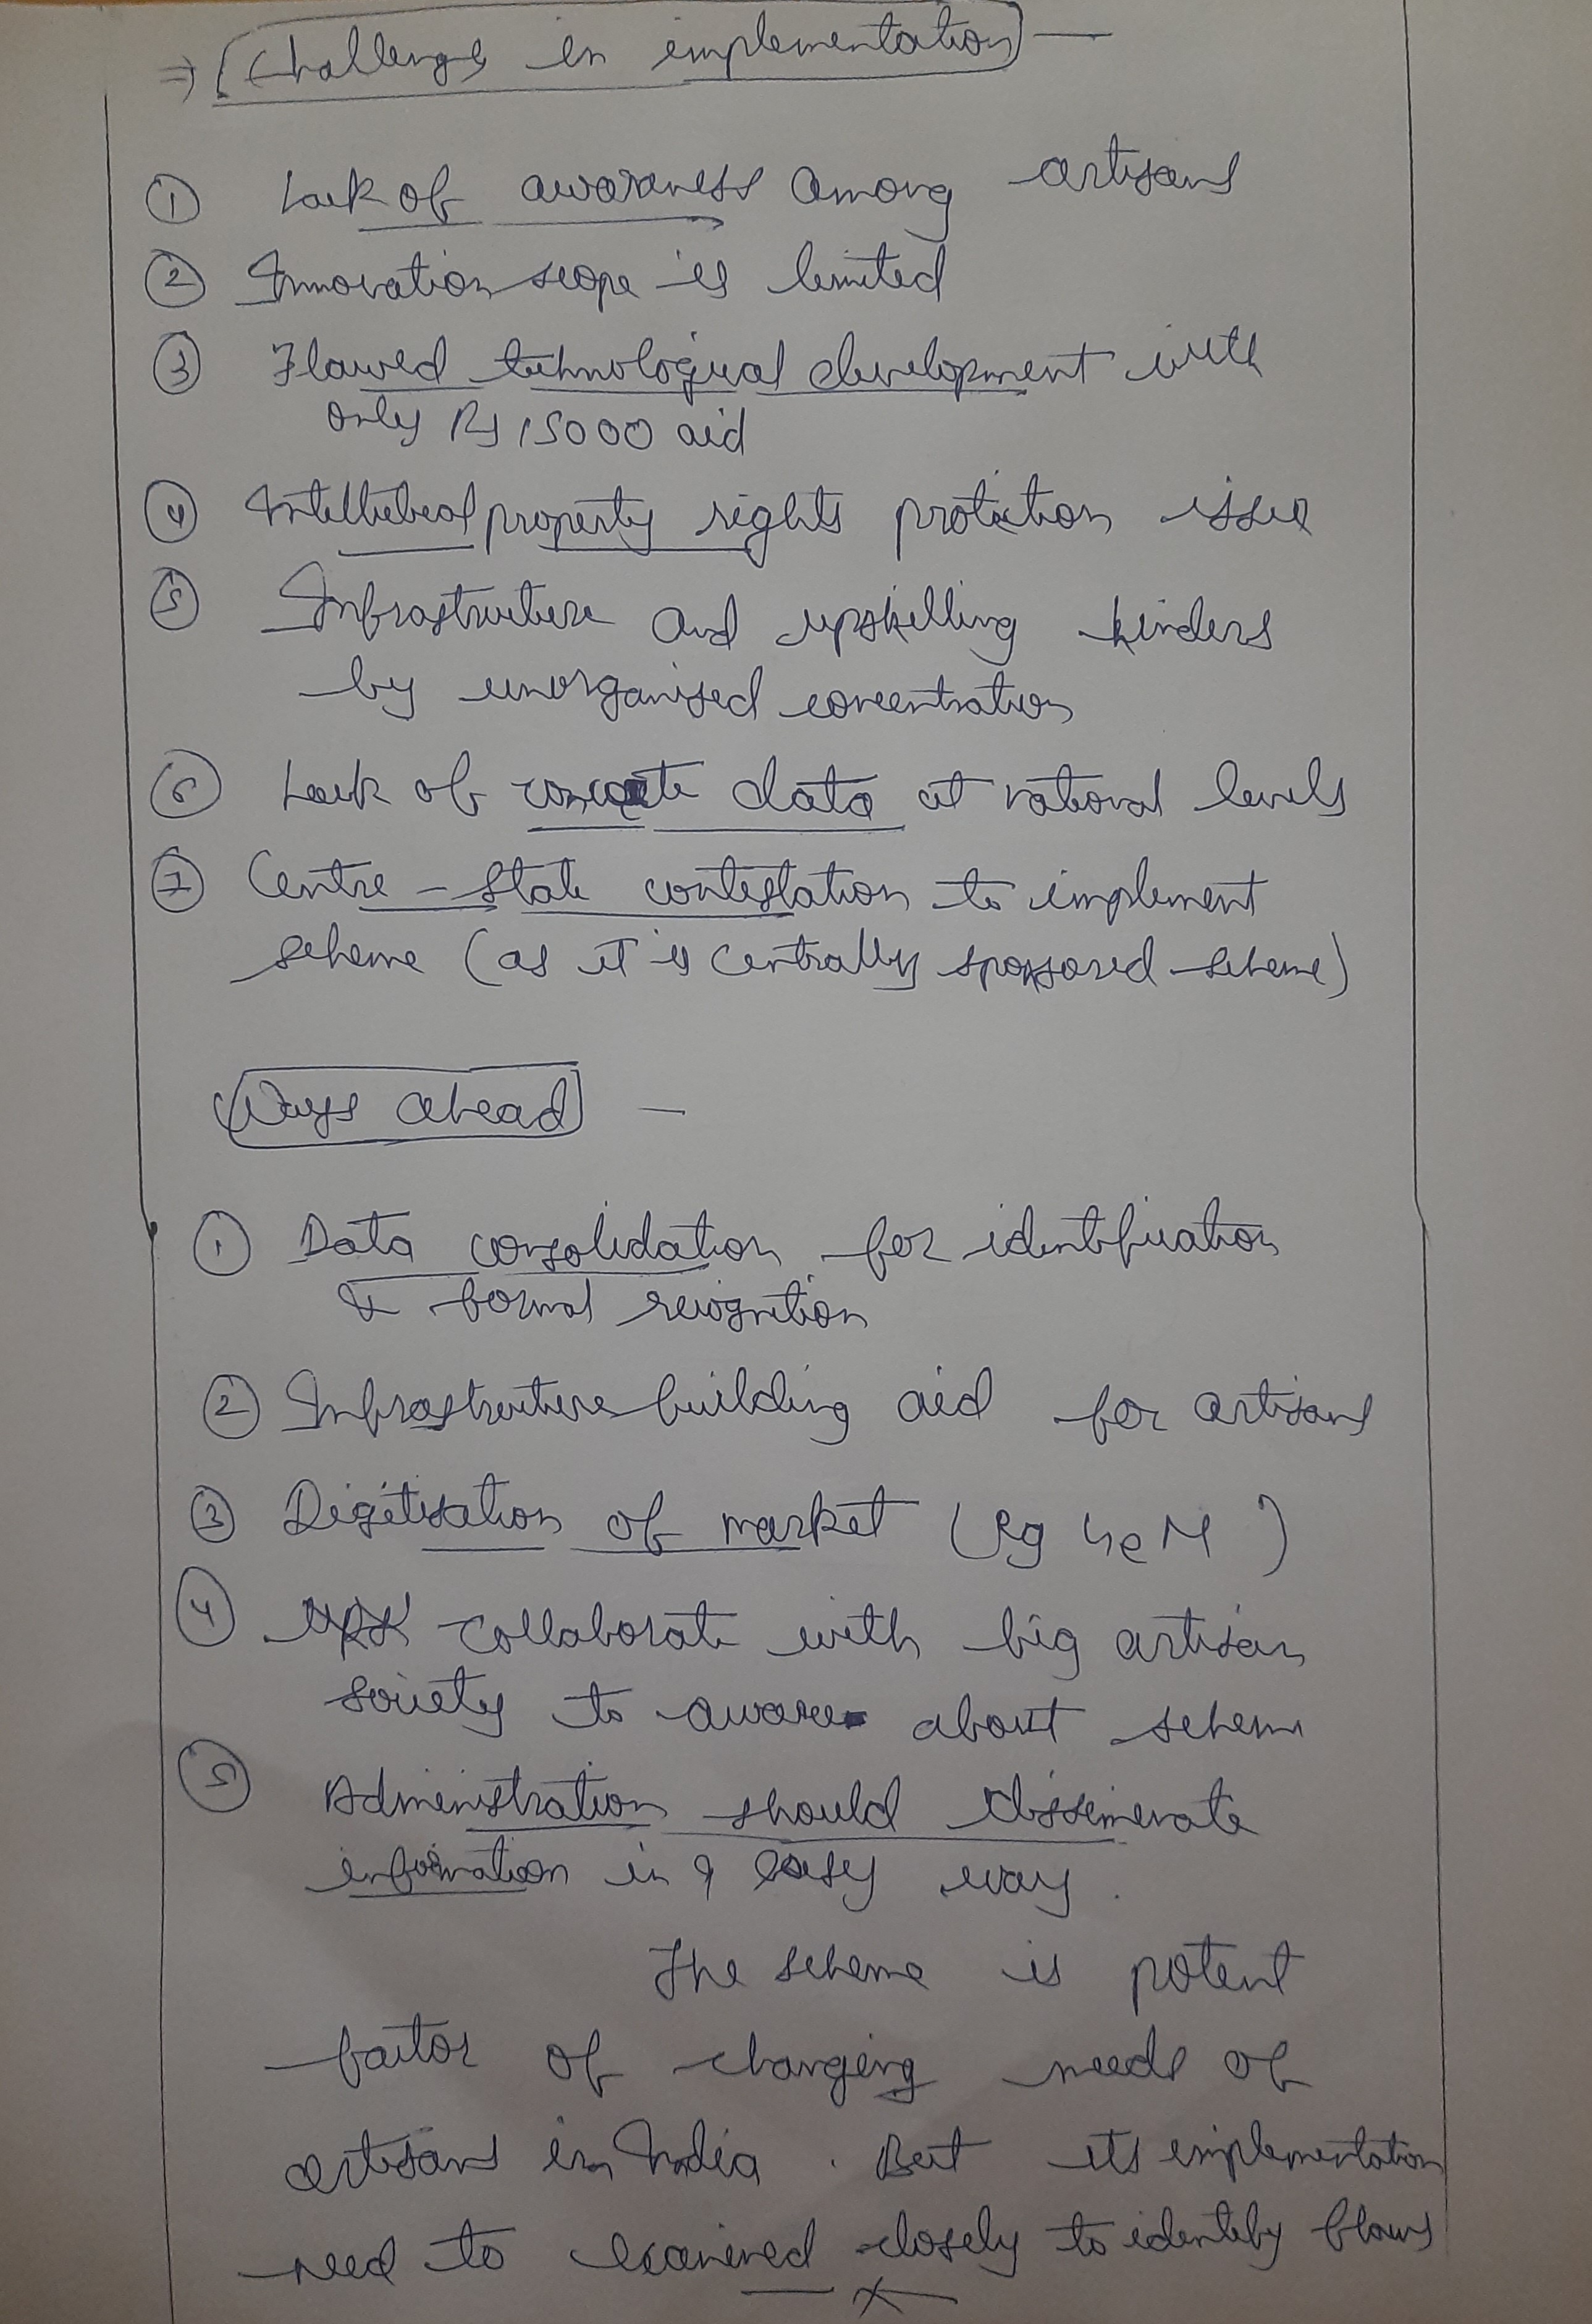 ⇒ Challenges in implementation —
① Lack of awareness among artisans
② Innovation scope is limited
③ Flawed technological development with
only Rs 15000 aid
④ Intellectual property rights protection issue
⑤ Infrastructure and upskilling hinders
by unorganised concentration
⑥ Lack of concrete data at national levels
⑦ Centre - State contestation to implement
scheme (as it is centrally sponsored scheme)
Ways ahead —
① Data consolidation for identification
& formal recognition
② Infrastructure building aid for artisans
③ Digitisation of market (eg GeM)
④ collaborate with big artisan
society to aware about scheme
⑤ Administration should disseminate
information in a easy way.
The scheme is potent
factor of changing needs of
artisans in India. But its implementation
need to examined closely to identify flaws